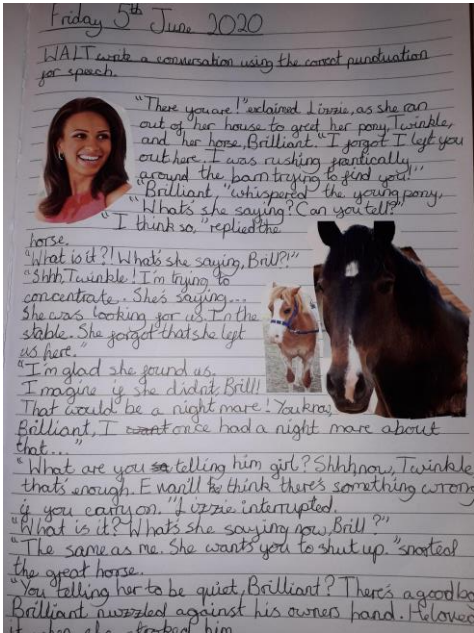 Friday 5th June 2020
WALT write a conversation using the correct punctuation
for speech.
"There you are!" exclaimed Lizzie, as she ran
out of her house to greet her pony, Twinkle,
and her horse, Brilliant. "I forgot I left you
out here. I was rushing frantically
around the barn trying to find you!"
"Brilliant, "whispered the young pony,
"What's she saying? Can you tell?"
"I think so, "replied the
horse.
"What is it?! What's she saying, Brill?!"
"Shhh, Twinkle! I'm trying to
concentrate. She's saying...
She was looking for us. In the
stable. She forgot that she left
us here."
"I'm glad she found us.
Imagine if she didn't, Brill!
That would be a night mare! You know,
Brilliant, I want once had a night mare about
that..."
"What are you sa telling him girl? Shhh now, Twinkle
that's enough. Evan'll be think there's something wrong
if you carry on. "Lizzie interrupted.
"What is it? What's she saying now, Brill?"
"The same as me. She wants you to shut up. "snorted
the great horse.
"You telling her to be quiet, Brilliant? There's a good bo
Brilliant nuzzled against his owners hand. He love
it when she stroked him